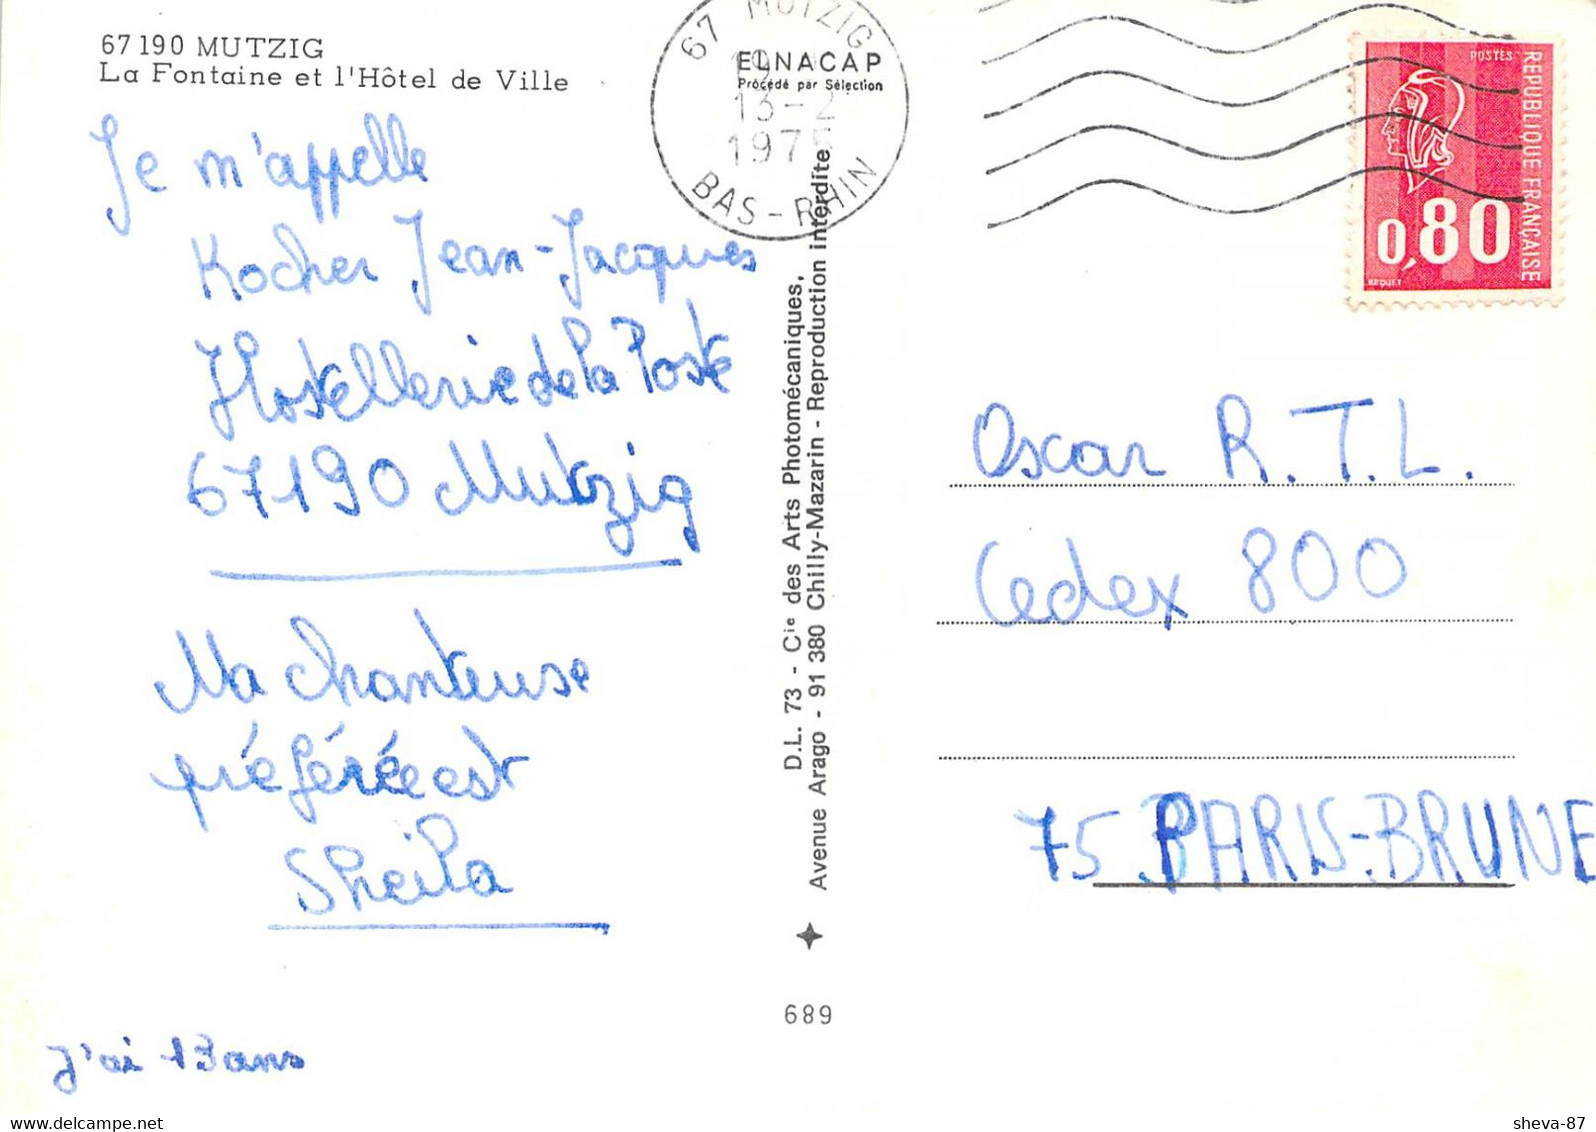 67190 MUTZIG
La Fontaine et l'Hôtel de Ville
Je m'appelle
Kocher Jean-Jacques
Hostellerie de la Poste
67190 Mutzig
Ma chanteuse
préférée est
Sheila
J'ai 13 ans
67 MUTZIG
13-2
1975
BAS-RHIN
ELNACAP
Procédé par Sélection
D.L. 73 - Cie des Arts Photomécaniques,
Avenue Arago - 91 380 Chilly-Mazarin - Reproduction interdite
689
POSTES
REPUBLIQUE FRANÇAISE
0,80
BEQUET
Oscar R.T.L.
Cedex 800
75 PARIS-BRUNE
sheva-87